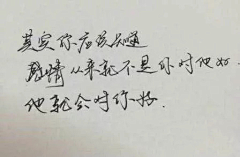 其实你应该知道
感情从来就不是你对他好
他就会对你好.